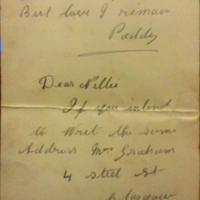 Best love I reman
Paddy
Dear Nellie
If you intend
to Writ the same
Address Mrs Graham
4 steel st
Glasgow